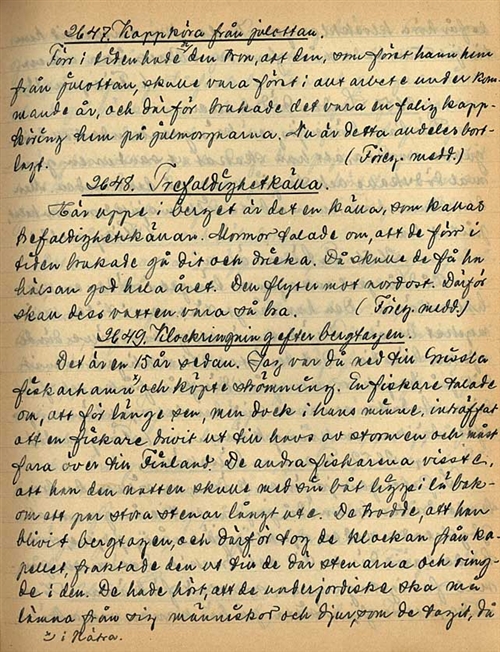 2647. Kappköra från julottan.
Förr i tiden hade 1) den tron, att den, som först hann hem
från julottan, skulle vara först i allt arbete under kom-
mande år, och därför brukade det vara en farlig kapp-
körning hem på julmorgnarna. Nu är detta alldeles bort-
lagt. (Föreg. medd.)
2648. Trefaldighetkälla.
Här uppe i berget är det en källa, som kallas
trefaldighetskällan. Mormor talade om, att de förr i
tiden brukade gå dit och dricka. Då skulle de få ha
hälsan god hela året. Den flyter mot nordost. Därför
skall dess vatten vara så bra. (Föreg. medd.)
2649. Klockringning efter bergtagen.
Det är en 15 år sedan. Jag var då ned till
fiskarhamn 1) och köpte strömming. En fiskare talade
om, att för länge sen, men dock i hans minne, inträffat
att en fiskare drivit ut till havs av stormen och måst
fara över till Finland. De andra fiskarena visste,
att han den natten skulle med sin båt ligga i lä bak-
om ett par stora stenar långt ute. De trodde, att han
blivit bergtagen, och därför tog de klockan från ka-
pellet, fraktade den ut till de där stenarna och ring-
de i den. De hade hört, att de underjordiske ska
lämna från sig människor och djur, som de tagit, då
1) i Nätra.